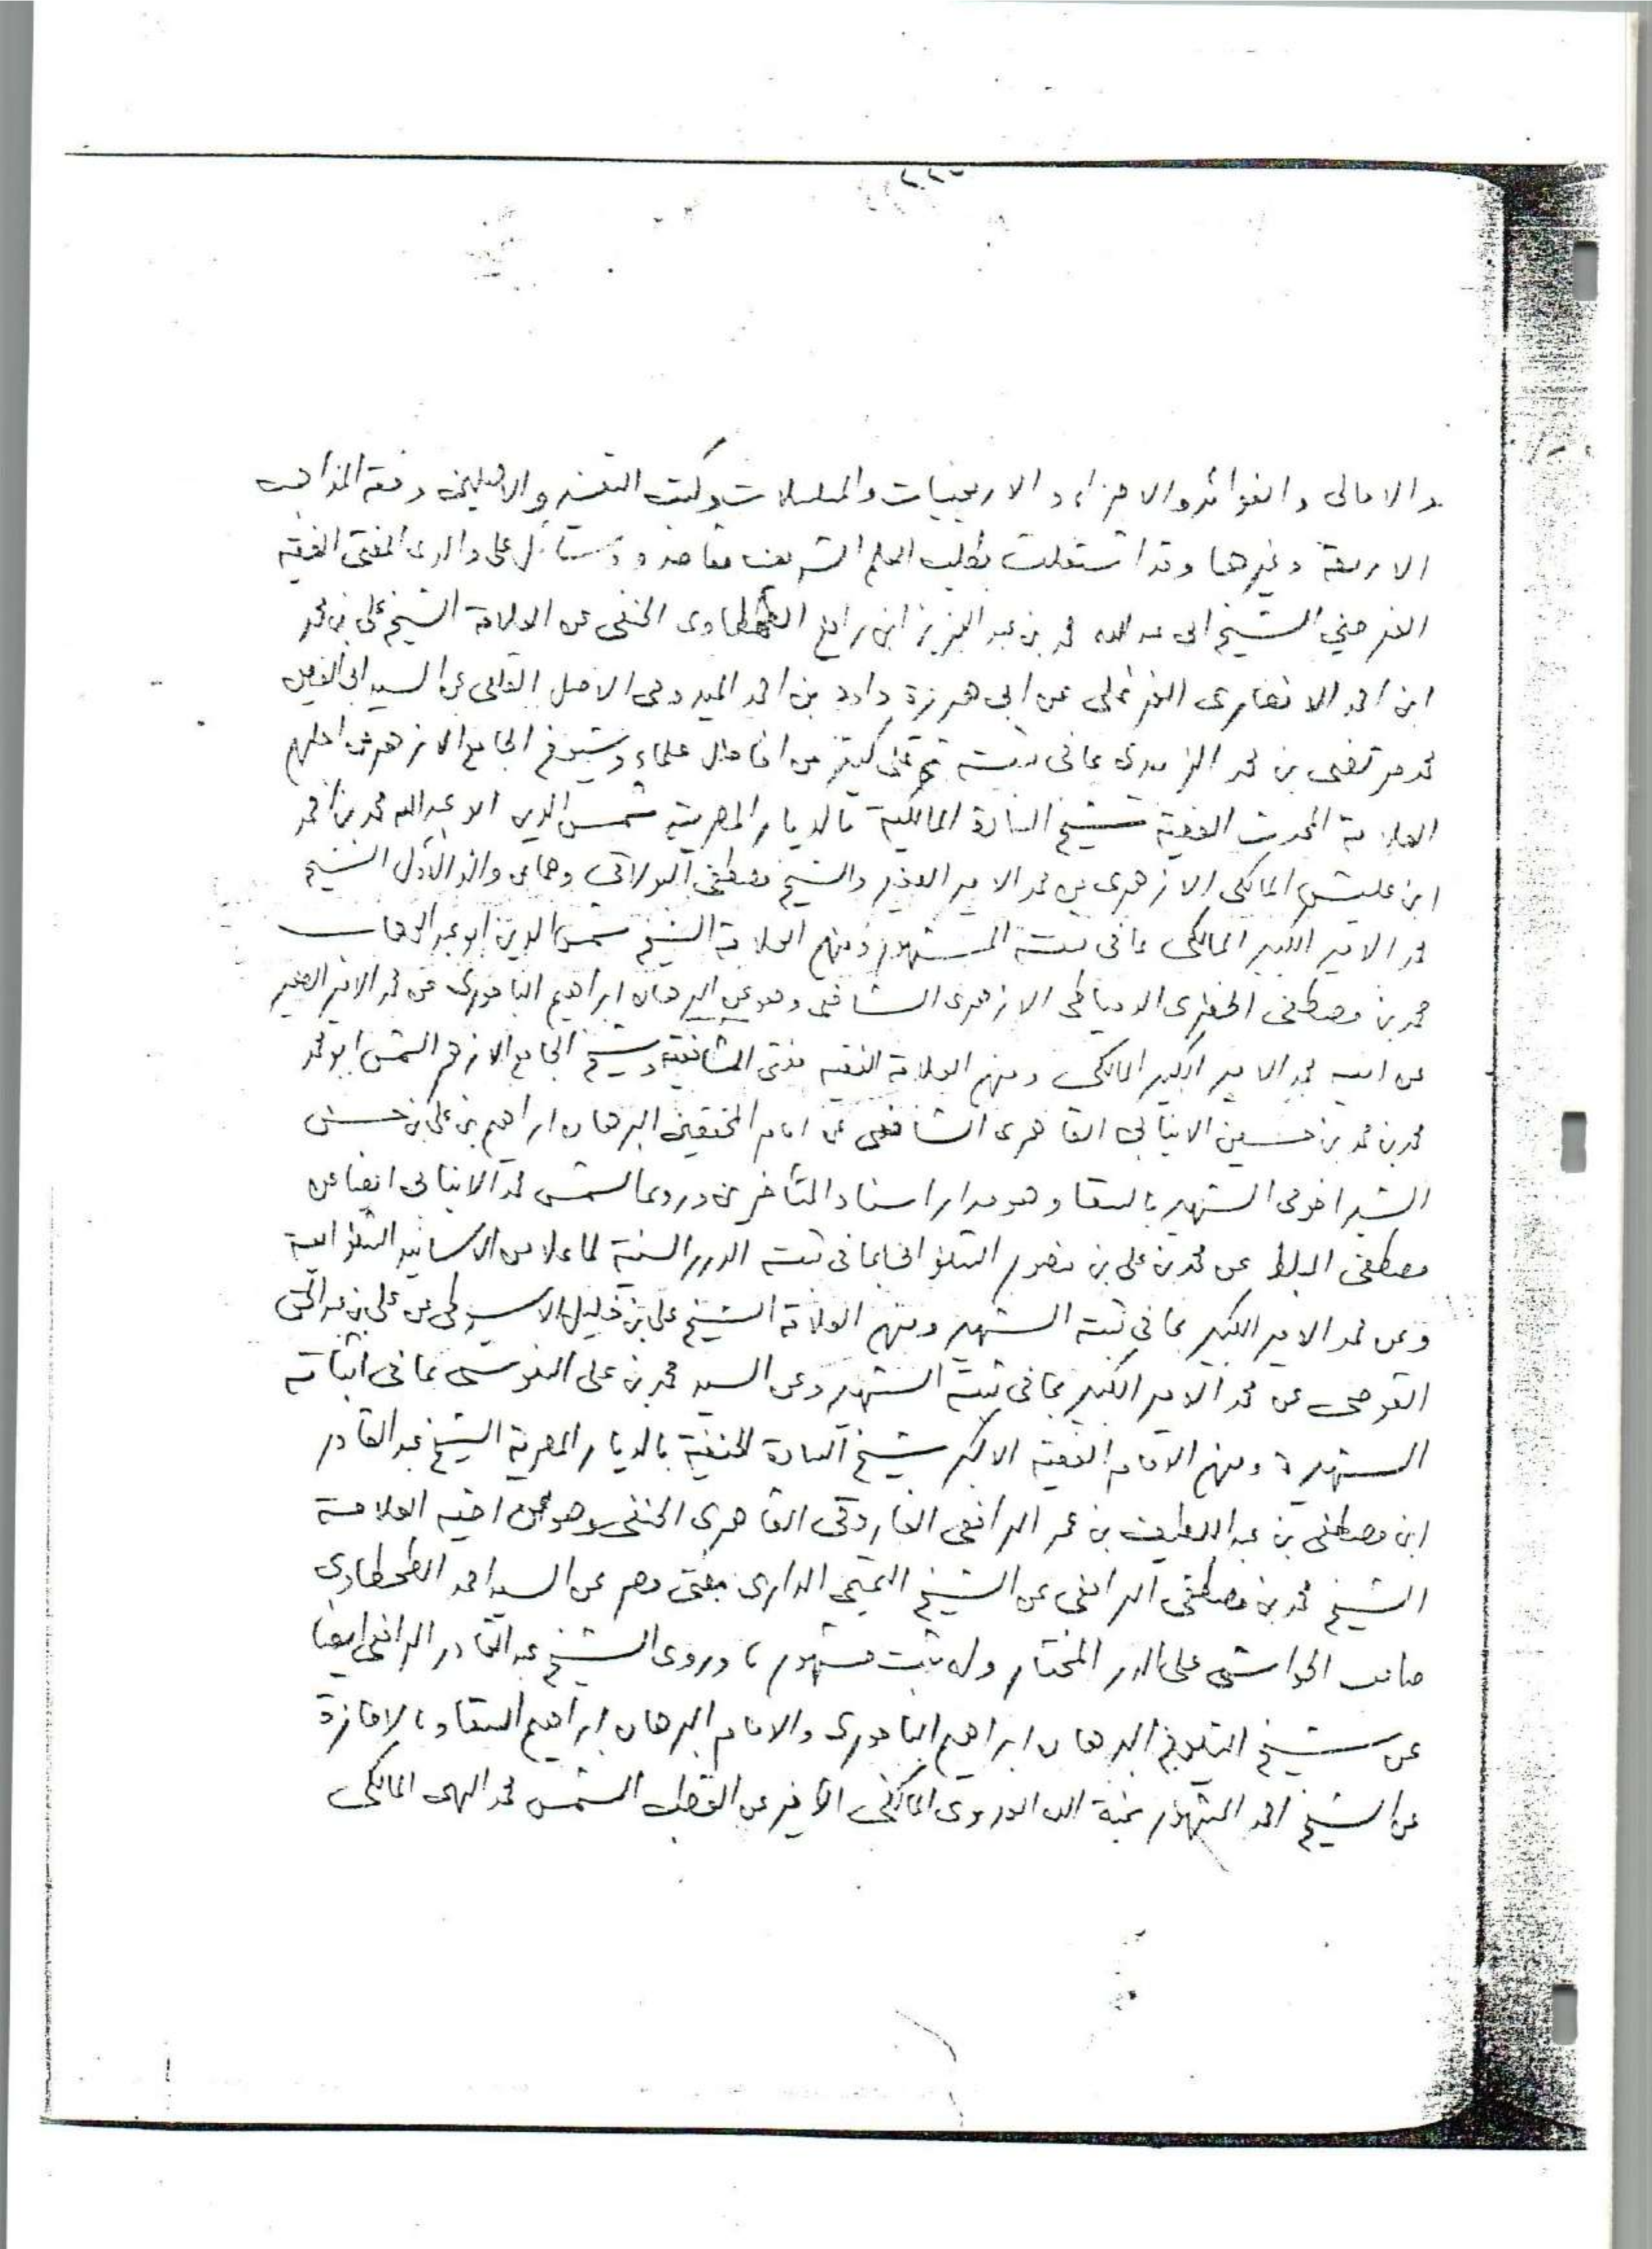 والامالى والفوائد والاجزاء والاربعينيات والمسلسلات وكتب التفسير والاصلين وفقه المذاهب
الاربعة وغيرها وقد اشتغلت بطلب العلم الشريف مقاصد ووسائل على والدى المفتى الفقيه
الفرضي الشيخ ابى عبد الله محمد بن عبد العزيز ابن رافع الطهطاوى الحنفى عن العلامة الشيخ على بن محمد
ابن احمد الانصارى عن ابى هريرة داود بن احمد الاصل عن السيد ابى الفيض
محمد مرتضى بن محمد الزبيدى بما فى ثبته ثم على كثير من افاضل علماء وشيوخ الجامع الازهر من اجلهم
العلامة المحدث الفقيه شيخ السادة المالكية بالديار المصرية شمس الدين ابو عبد الله محمد بن احمد
ابن عليش المالكى الازهرى عن محمد الامير الصغير والشيخ مصطفى البولاقى وهما عن والد الأول الشيخ
محمد الامير الكبير المالكى بما فى ثبته المشهور ومنهم العلامة الشيخ شمس الدين ابو عبد الوهاب
محمد بن مصطفى الخضرى الدمياطى الازهرى الشافعى وهو عن البرهان ابراهيم الباجورى عن محمد الامير الصغير
عن ابيه محمد الامير الكبير المالكى ومنهم العلامة الفقيه مفتى الشافعية وشيخ الجامع الازهر الشمس ابو محمد
محمد بن محمد بن حسين الانبابى القاهرى الشافعى عن امام المحققين البرهان ابراهيم بن على بن حسن
الشبراخومى الشهير بالسقا وهو مدار اسناد المتأخرين وروى الشمس محمد الانبابى ايضا عن
مصطفى المبلط عن محمد بن على بن منصور الشنوانى بما فى ثبته الدرر السنية لما علا من الاسانيد الشنوانية
وعن محمد الامير الكبير بما فى ثبته الشهير ومنهم العلامة الشيخ على بن خليل الاسيوطى عن على بن عبد الحق
القوصى عن محمد الامير الكبير بما فى ثبته الشهير وعن السيد محمد بن على السنوسى بما فى اثباته
الشهيرة ومنهم الامام الفقيه الاكبر شيخ السادة الحنفية بالديار المصرية الشيخ عبد القادر
ابن مصطفى بن عبد اللطيف بن عمر الرافعى الفاروقى القاهرى الحنفى وهو عن اخيه العلامة
الشيخ محمد بن مصطفى الرافعى عن الشيخ التميمى الدارى مفتى مصر عن السيد احمد الطحطاوى
صاحب الحواشى على الدر المختار وله ثبت مشهور وروى الشيخ عبد القادر الرافعى ايضا
عن شيخ الشيوخ البرهان ابراهيم الباجورى والامام البرهان ابراهيم السقا وبالاجازة
عن الشيخ احمد المشهور بمنة الله العدوى المالكى الاخير عن القطب الشمس محمد البهى المالكى